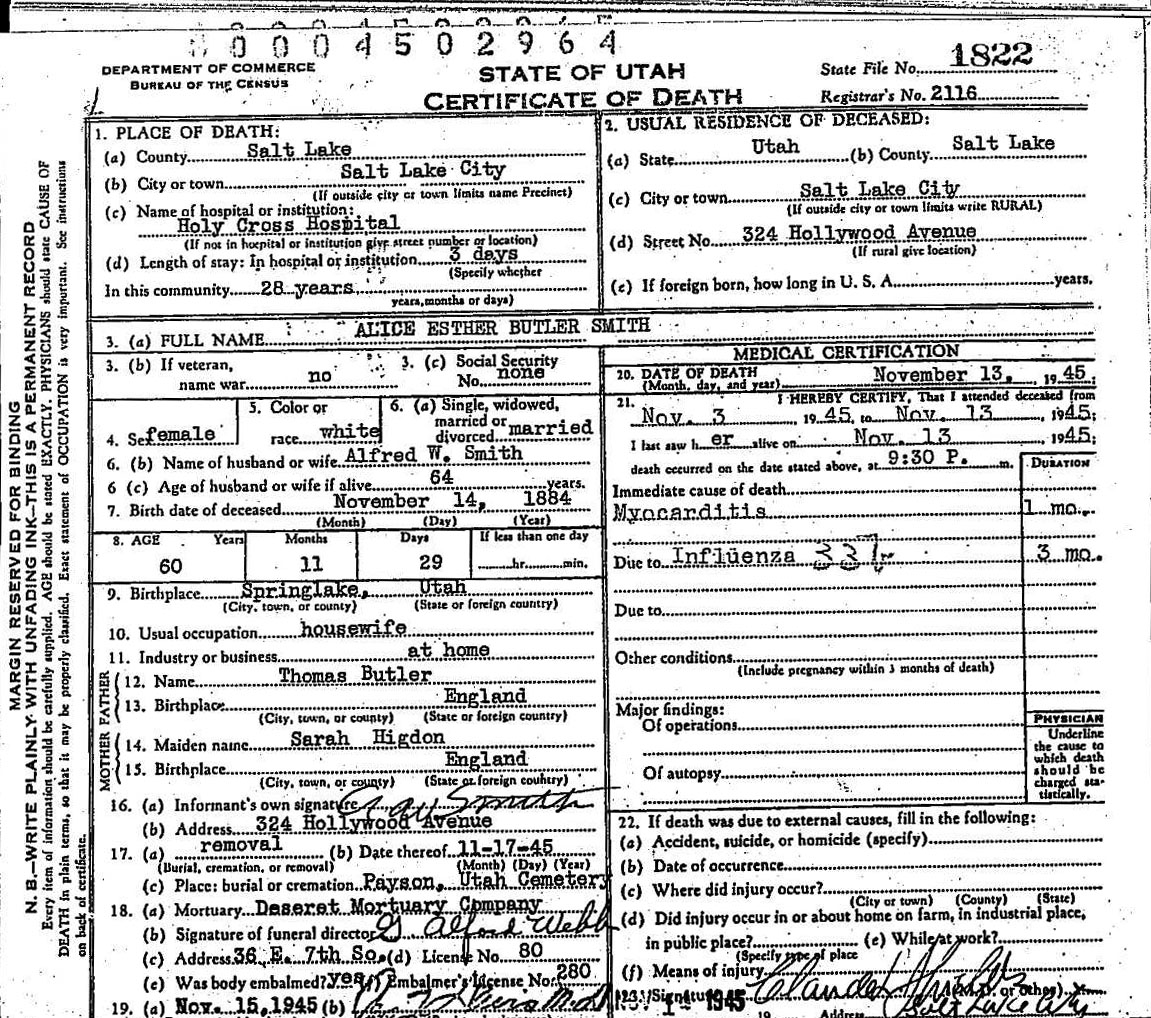 0004502964
DEPARTMENT OF COMMERCE
BUREAU OF THE CENSUS
STATE OF UTAH
CERTIFICATE OF DEATH
State File No. 1822
Registrar's No. 2116
MARGIN RESERVED FOR BINDING
N. B.—WRITE PLAINLY WITH UNFADING INK—THIS IS A PERMANENT RECORD
Every item of information should be carefully supplied. AGE should be stated EXACTLY. PHYSICIANS should state CAUSE OF
DEATH in plain terms, so that it may be properly classified. Exact statement of OCCUPATION is very important. See instructions
on back of certificate.
1. PLACE OF DEATH:
(a) County Salt Lake
(b) City or town Salt Lake City
(If outside city or town limits name Precinct)
(c) Name of hospital or institution:
Holy Cross Hospital
(If not in hospital or institution give street number or location)
(d) Length of stay: In hospital or institution 3 days
(Specify whether
In this community 28 years
years, months or days)
2. USUAL RESIDENCE OF DECEASED:
(a) State Utah (b) County Salt Lake
(c) City or town Salt Lake City
(If outside city or town limits write RURAL)
(d) Street No. 324 Hollywood Avenue
(If rural give location)
(e) If foreign born, how long in U. S. A. years.
3. (a) FULL NAME ALICE ESTHER BUTLER SMITH
3. (b) If veteran, name war no
3. (c) Social Security No. none
4. Sex female
5. Color or race white
6. (a) Single, widowed, married or divorced married
6. (b) Name of husband or wife Alfred W. Smith
6 (c) Age of husband or wife if alive 64 years.
7. Birth date of deceased November 14, 1884
(Month) (Day) (Year)
8. AGE Years Months Days If less than one day
60 11 29 hr. min.
9. Birthplace Springlake, Utah
(City, town, or county) (State or foreign country)
10. Usual occupation housewife
11. Industry or business at home
FATHER
12. Name Thomas Butler
13. Birthplace England
(City, town, or county) (State or foreign country)
MOTHER
14. Maiden name Sarah Higdon
15. Birthplace England
(City, town, or county) (State or foreign country)
16. (a) Informant's own signature Smith
(b) Address 324 Hollywood Avenue
17. (a) removal (b) Date thereof 11-17-45
(Burial, cremation, or removal) (Month) (Day) (Year)
(c) Place: burial or cremation Payson, Utah Cemetery
18. (a) Mortuary Deseret Mortuary Company
(b) Signature of funeral director G Alford Webb
(c) Address 36 E. 7th So. (d) License No. 80
(e) Was body embalmed? yes (f) Embalmer's License No. 280
19. (a) Nov. 15, 1945 (b)
MEDICAL CERTIFICATION
20. DATE OF DEATH
(Month, day, and year) November 13, 1945
21. I HEREBY CERTIFY, That I attended deceased from
Nov. 3 1945, to Nov. 13 1945;
I last saw her alive on Nov. 13 1945;
death occurred on the date stated above, at 9:30 P. m.
DURATION
Immediate cause of death
Myocarditis 1 mo.
Due to Influenza 33 3 mo.
Due to
Other conditions
(Include pregnancy within 3 months of death)
Major findings:
Of operations
Of autopsy
PHYSICIAN
Underline
the cause to
which death
should be
charged sta-
tistically.
22. If death was due to external causes, fill in the following:
(a) Accident, suicide, or homicide (specify)
(b) Date of occurrence
(c) Where did injury occur?
(City or town) (County) (State)
(d) Did injury occur in or about home on farm, in industrial place,
in public place? (e) While at work?
(Specify type of place
(f) Means of injury
23. Signature Claude (M.D. or other)
1945 19 Address Salt Lake City